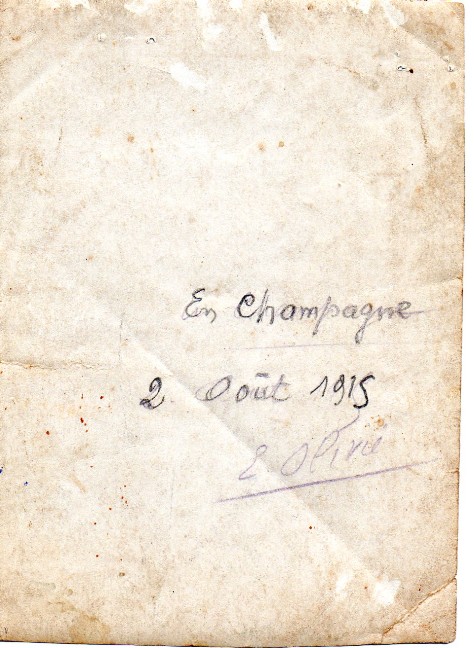 En Champagne
2 Août 1915
E